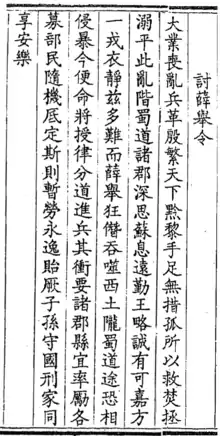 討薛舉令
大業喪亂兵革殷繁天下黔黎手足無措孤所以救焚拯
溺平此亂階蜀道諸郡深思蘇息遠勤王略誠有可嘉方
一戎衣靜兹多難而薛舉狂僭吞噬西土隴蜀道途恐相
侵暴今便命將授律分道進兵其衝要諸郡縣宜率勵各
募部民隨機底定斯則暫勞永逸貽厥子孫守國刑家同
享安樂